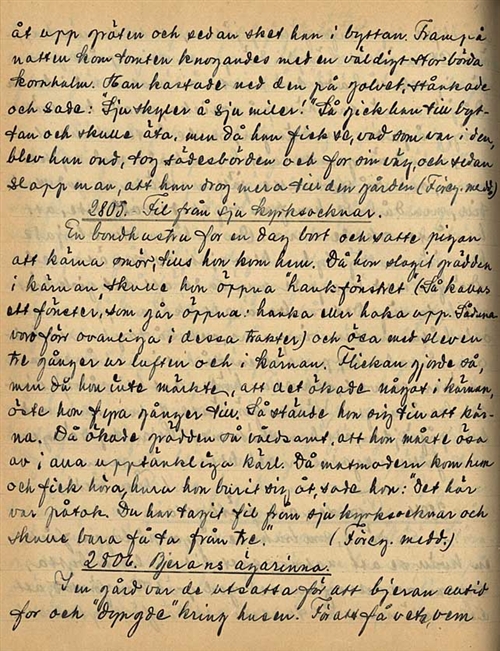 åt upp gröten och sedan sket hen i byttan. Fram på
natten kom tomten knogandes med en väldigt stor börda
kornhalm. Han kastade ned den på golvet, stånkade
och sade: "Sju skyler å sju miler!" Så gick han till byt-
tan och skulle äta, men då han fick se, vad som var i den,
blev han ond, tog sädesbörden och for sin väg, och sedan
slapp man, att han drog mera till den gården (Föreg. medd.)
2805. Fil från sju kyrksocknar.
En bondhustru for en dag bort och satte pigan
att kärna smör, tills hon kom hem. Då hon slagit grädden
i kärnan skulle hon öppna "hankfönstret" (Så kallas
ett fönster, som går öppna: hanka eller haka upp. Sådana
voro förr ovanliga i dessa trakter) och ösa med sleven
tre gånger ur luften och i kärnan. Flickan gjorde så,
men då hon inte märkte, att det ökade något i kärnan,
öste hon fyra gånger till. Så stände hon sig till att kär-
na. Då ökade grädden så våldsamt, att hon måste ösa
av i alla upptänkliga kärl. Då matmodern kom hem
och fick höra, huru hon burit sig åt, sade hon: "Det här
var på tok. Du har tagit fil från sju kyrksocknar och
skulle bara få ta från tre." (Föreg. medd.)
2806. Bjerans ägarinna.
I en gård var de utsatta för att bjeran alltid
for och "dyngde" kring husen. För att få veta, vem